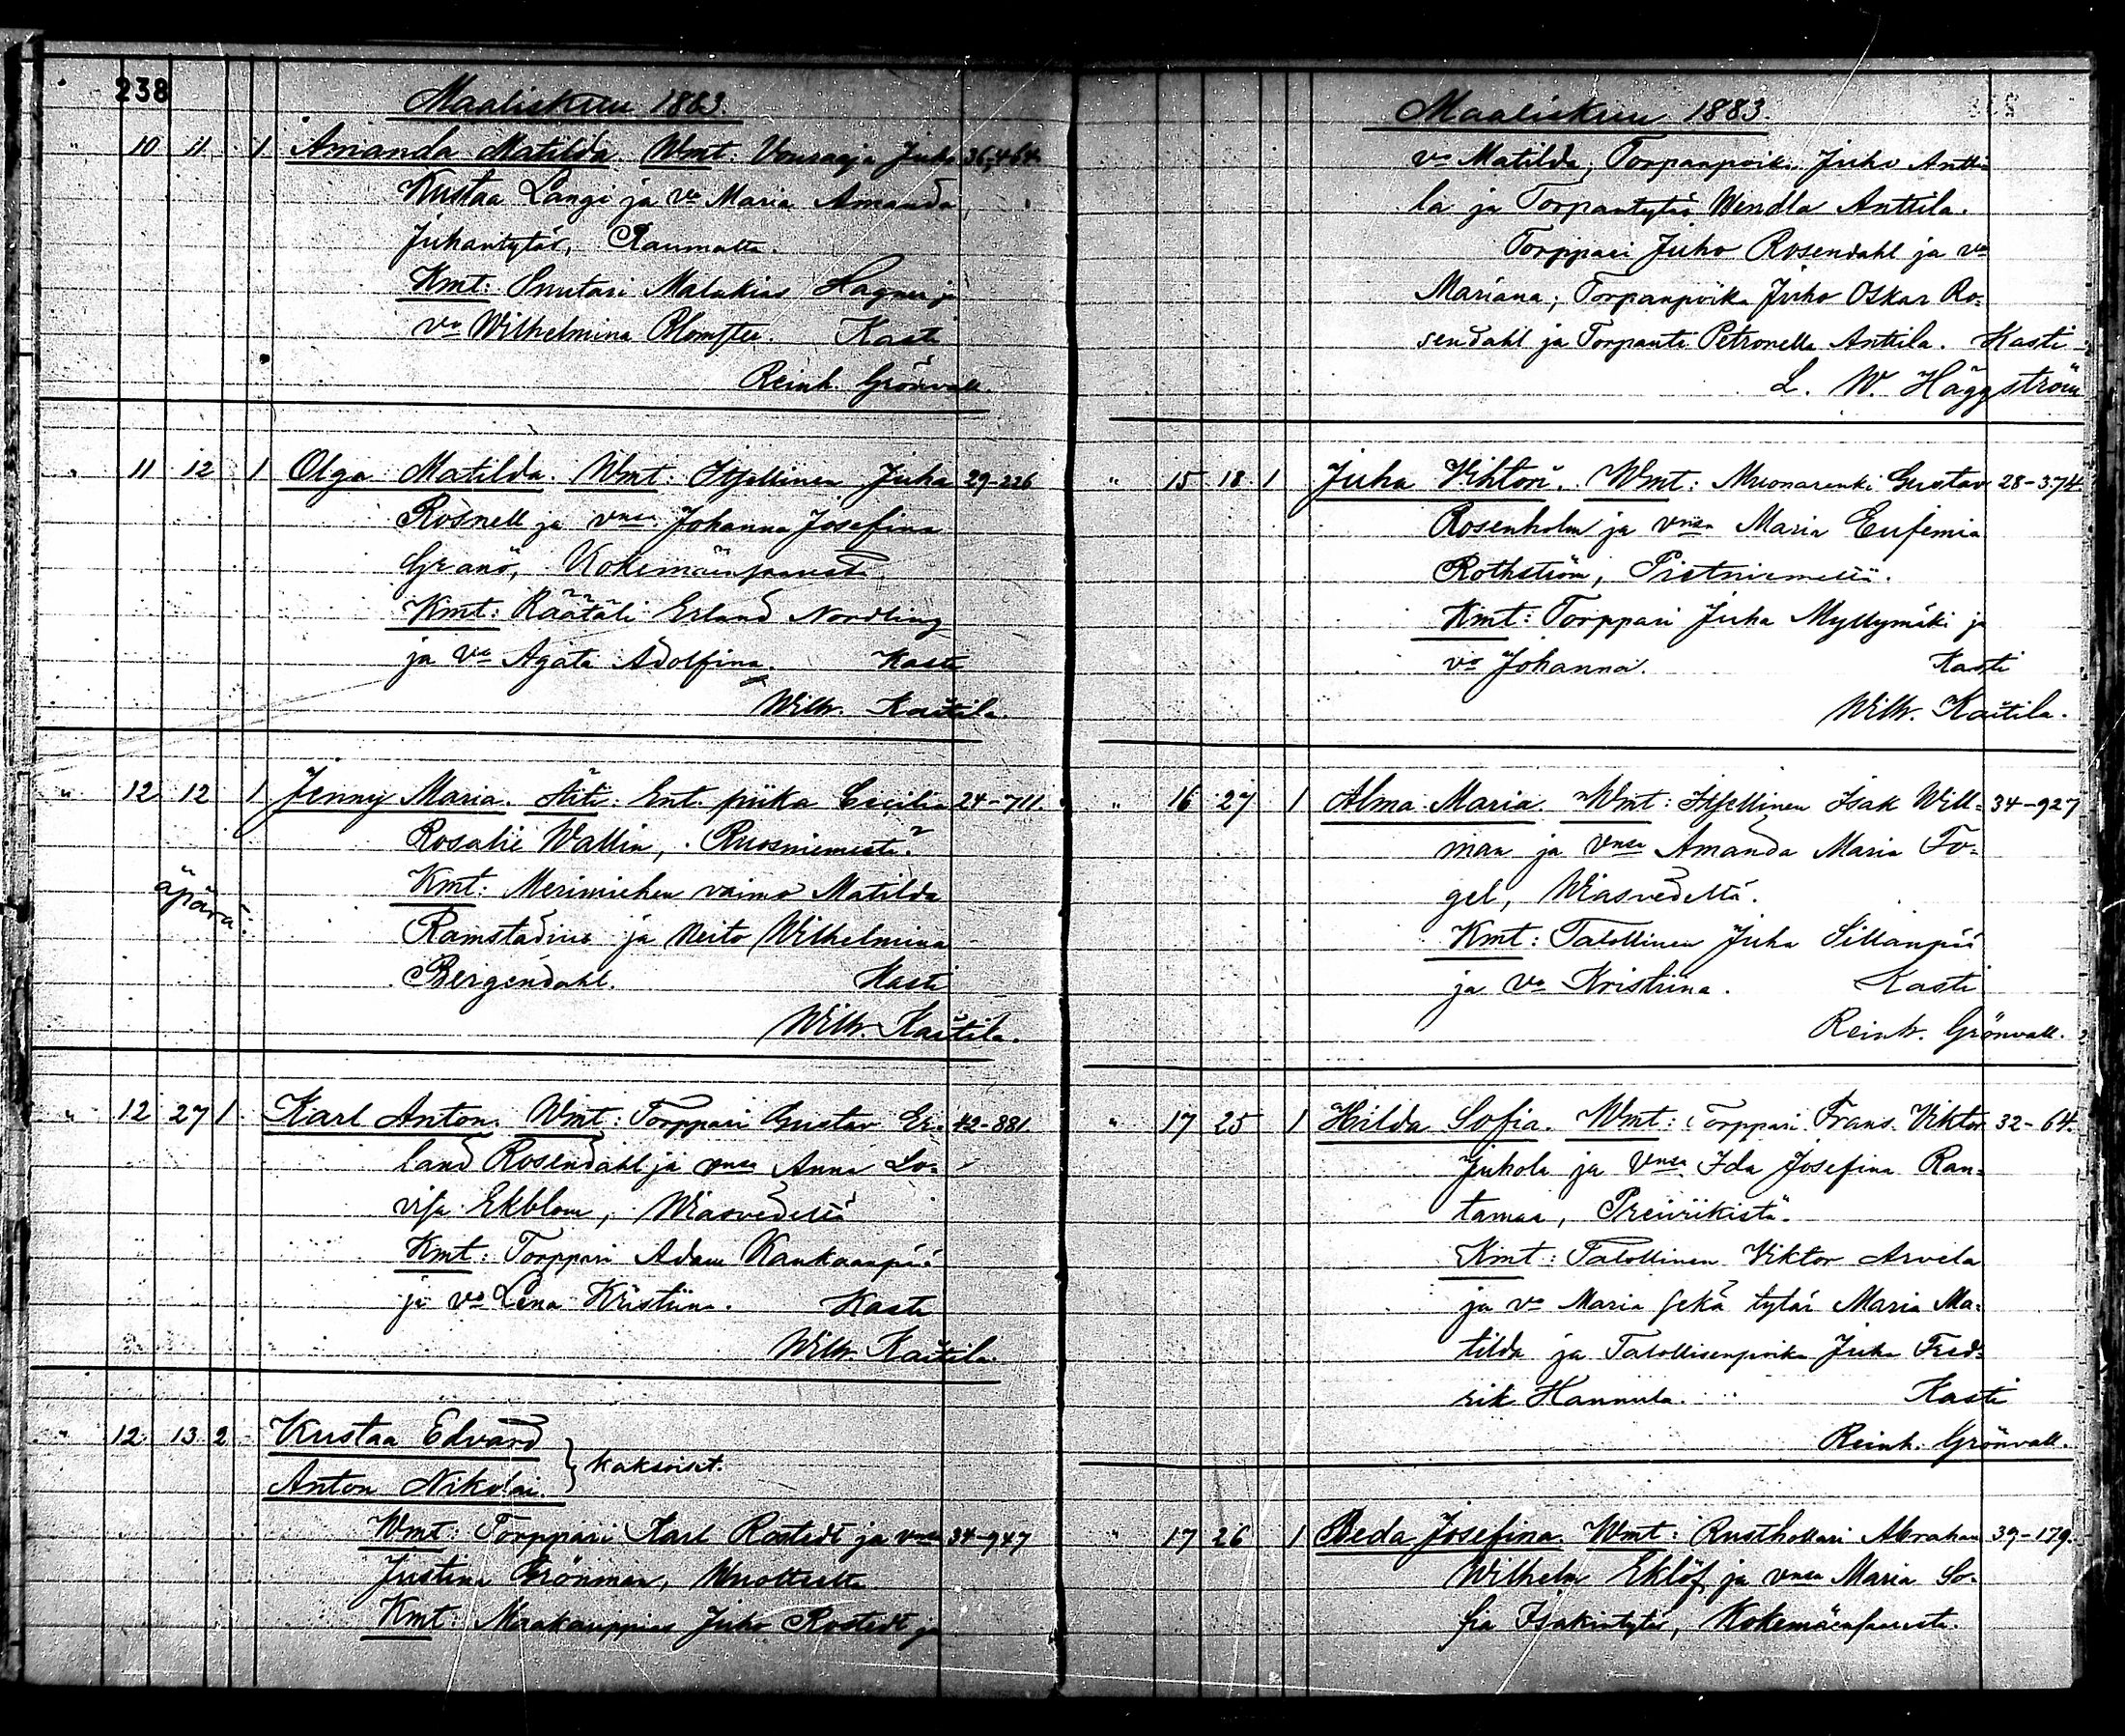 238
Maaliskuu 1883.
" 10 11 1 Amanda Matilda. Wmt: Vouraaja Juho 36-464
Kustaa Langi ja vo Maria Amanda
Juhantytär, Raumalta.
Kmt: Suutari Malakias Hagner ja
vo Wilhelmina Blomster. Kasti
Reinh. Grönvall.
" 11 12 1 Olga Matilda. Wmt: Itsellinen Juha 29-226
Rosnell ja vnsa Johanna Josefina
Granö, Kokemäensaaresta
Kmt: Räätäli Erland Nordling
ja vo Agata Adolfina. Kasti
Wilh. Kastila.
" 12 12 1 Jenny Maria. Äiti: Ent. piika Cecilia 24-711.
Rosalie Wallin, Ruosniemestä.
äpärä.
Kmt: Merimiehen vaimo Matilda
Ramstadius ja Neito Wilhelmina
Bergendahl. Kasti
Wilh. Kastila.
" 12 27 1 Karl Anton. Wmt: Torppari Gustav Er- 42-881
land Rosendahl ja vnsa Anna Lo-
visa Ekblom, Wiasvedeltä
Kmt: Torppari Adam Kankaanpää
ja vo Lena Kristiina. Kasti
Wilh. Kastila.
" 12 13 2 Kustaa Edvard
Anton Nikolai } kaksoiset.
Wmt: Torppari Karl Rostedt ja vnsa 34-947
Justina Grönman,
Kmt: Maakauppias Juho Rostedt ja
Maaliskuu 1883.
vo Matilda; Torpanpoika Juho Antti-
la ja Torpantytär Wendla Anttila.
Torppari Juho Rosendahl ja vo
Mariana; Torpanpoika Juho Oskar Ro-
sendahl ja Torpanti Petronella Anttila. Kasti
L. W. Häggström
" 15 18 1 Juha Vihtori. Wmt: Muonarenki Gustav 28-374.
Rosenholm ja vnsa Maria Eufemia
Rothström, Pietniemeltä.
Kmt: Torppari Juha Myllymäki ja
vo Johanna. Kasti
Wilh. Kastila.
" 16 27 1 Alma Maria. Wmt: Itsellinen Isak Will- 34-927
man ja vnsa Amanda Maria Fo-
gel, Wiasvedeltä.
Kmt: Talollinen Juha Sillanpää
ja vo Kristiina. Kasti
Reinh. Grönvall.
" 17 25 1 Hilda Sofia. Wmt: Torppari Frans Viktor 32-64.
Juhola ja vnsa Ida Josefina Ran-
tamaa, Preiviikistä.
Kmt: Talollinen Viktor Arvela
ja vo Maria sekä tytär Maria Ma-
tilda ja Talollisenpoika Juha Fred-
rik Hannula. Kasti
Reinh. Grönvall.
" 17 26 1 Beda Josefina. Wmt: Rusthollari Abraham 39-179.
Wilhelm Eklöf ja vnsa Maria So-
fia Isakintytär, Kokemäensaaresta.